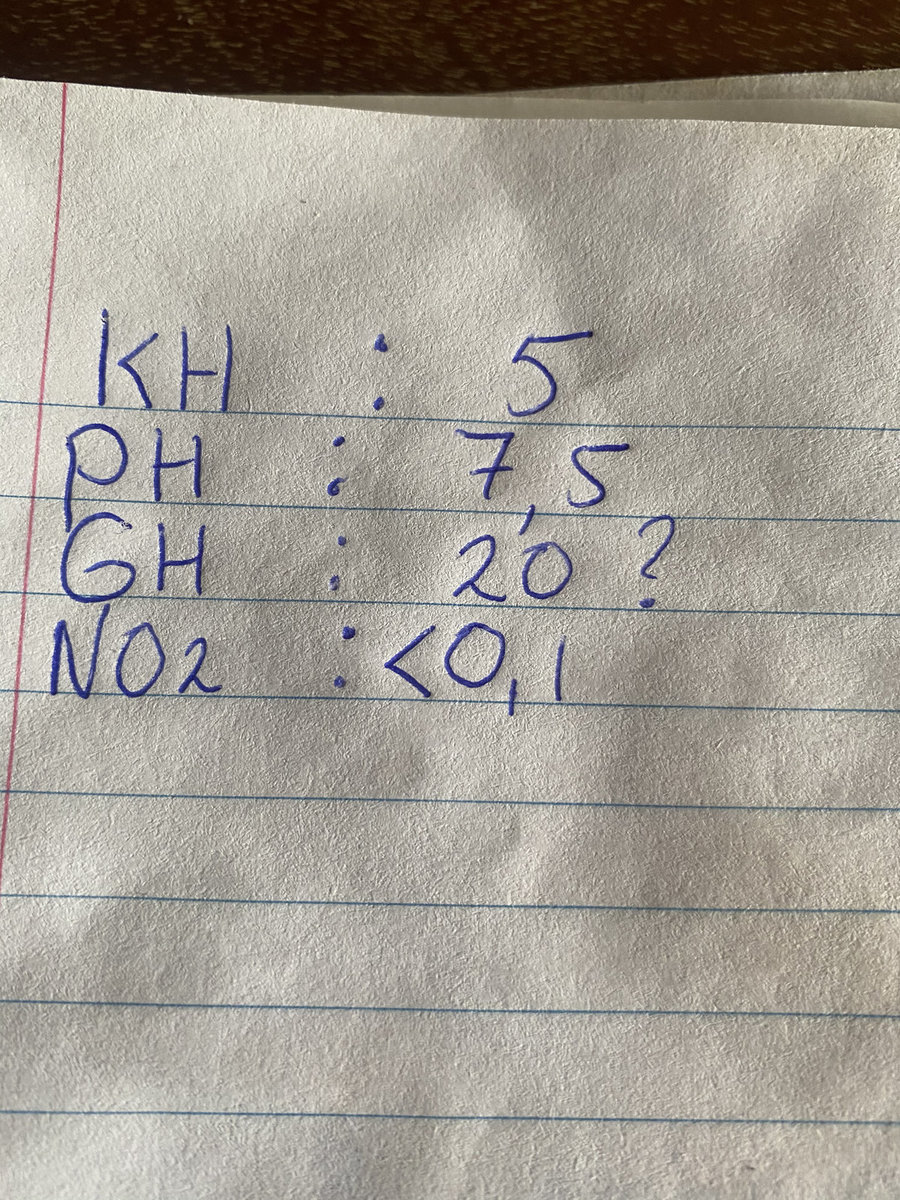 KH : 5
PH : 7,5
GH : 20 ?
NO2 : <0,1